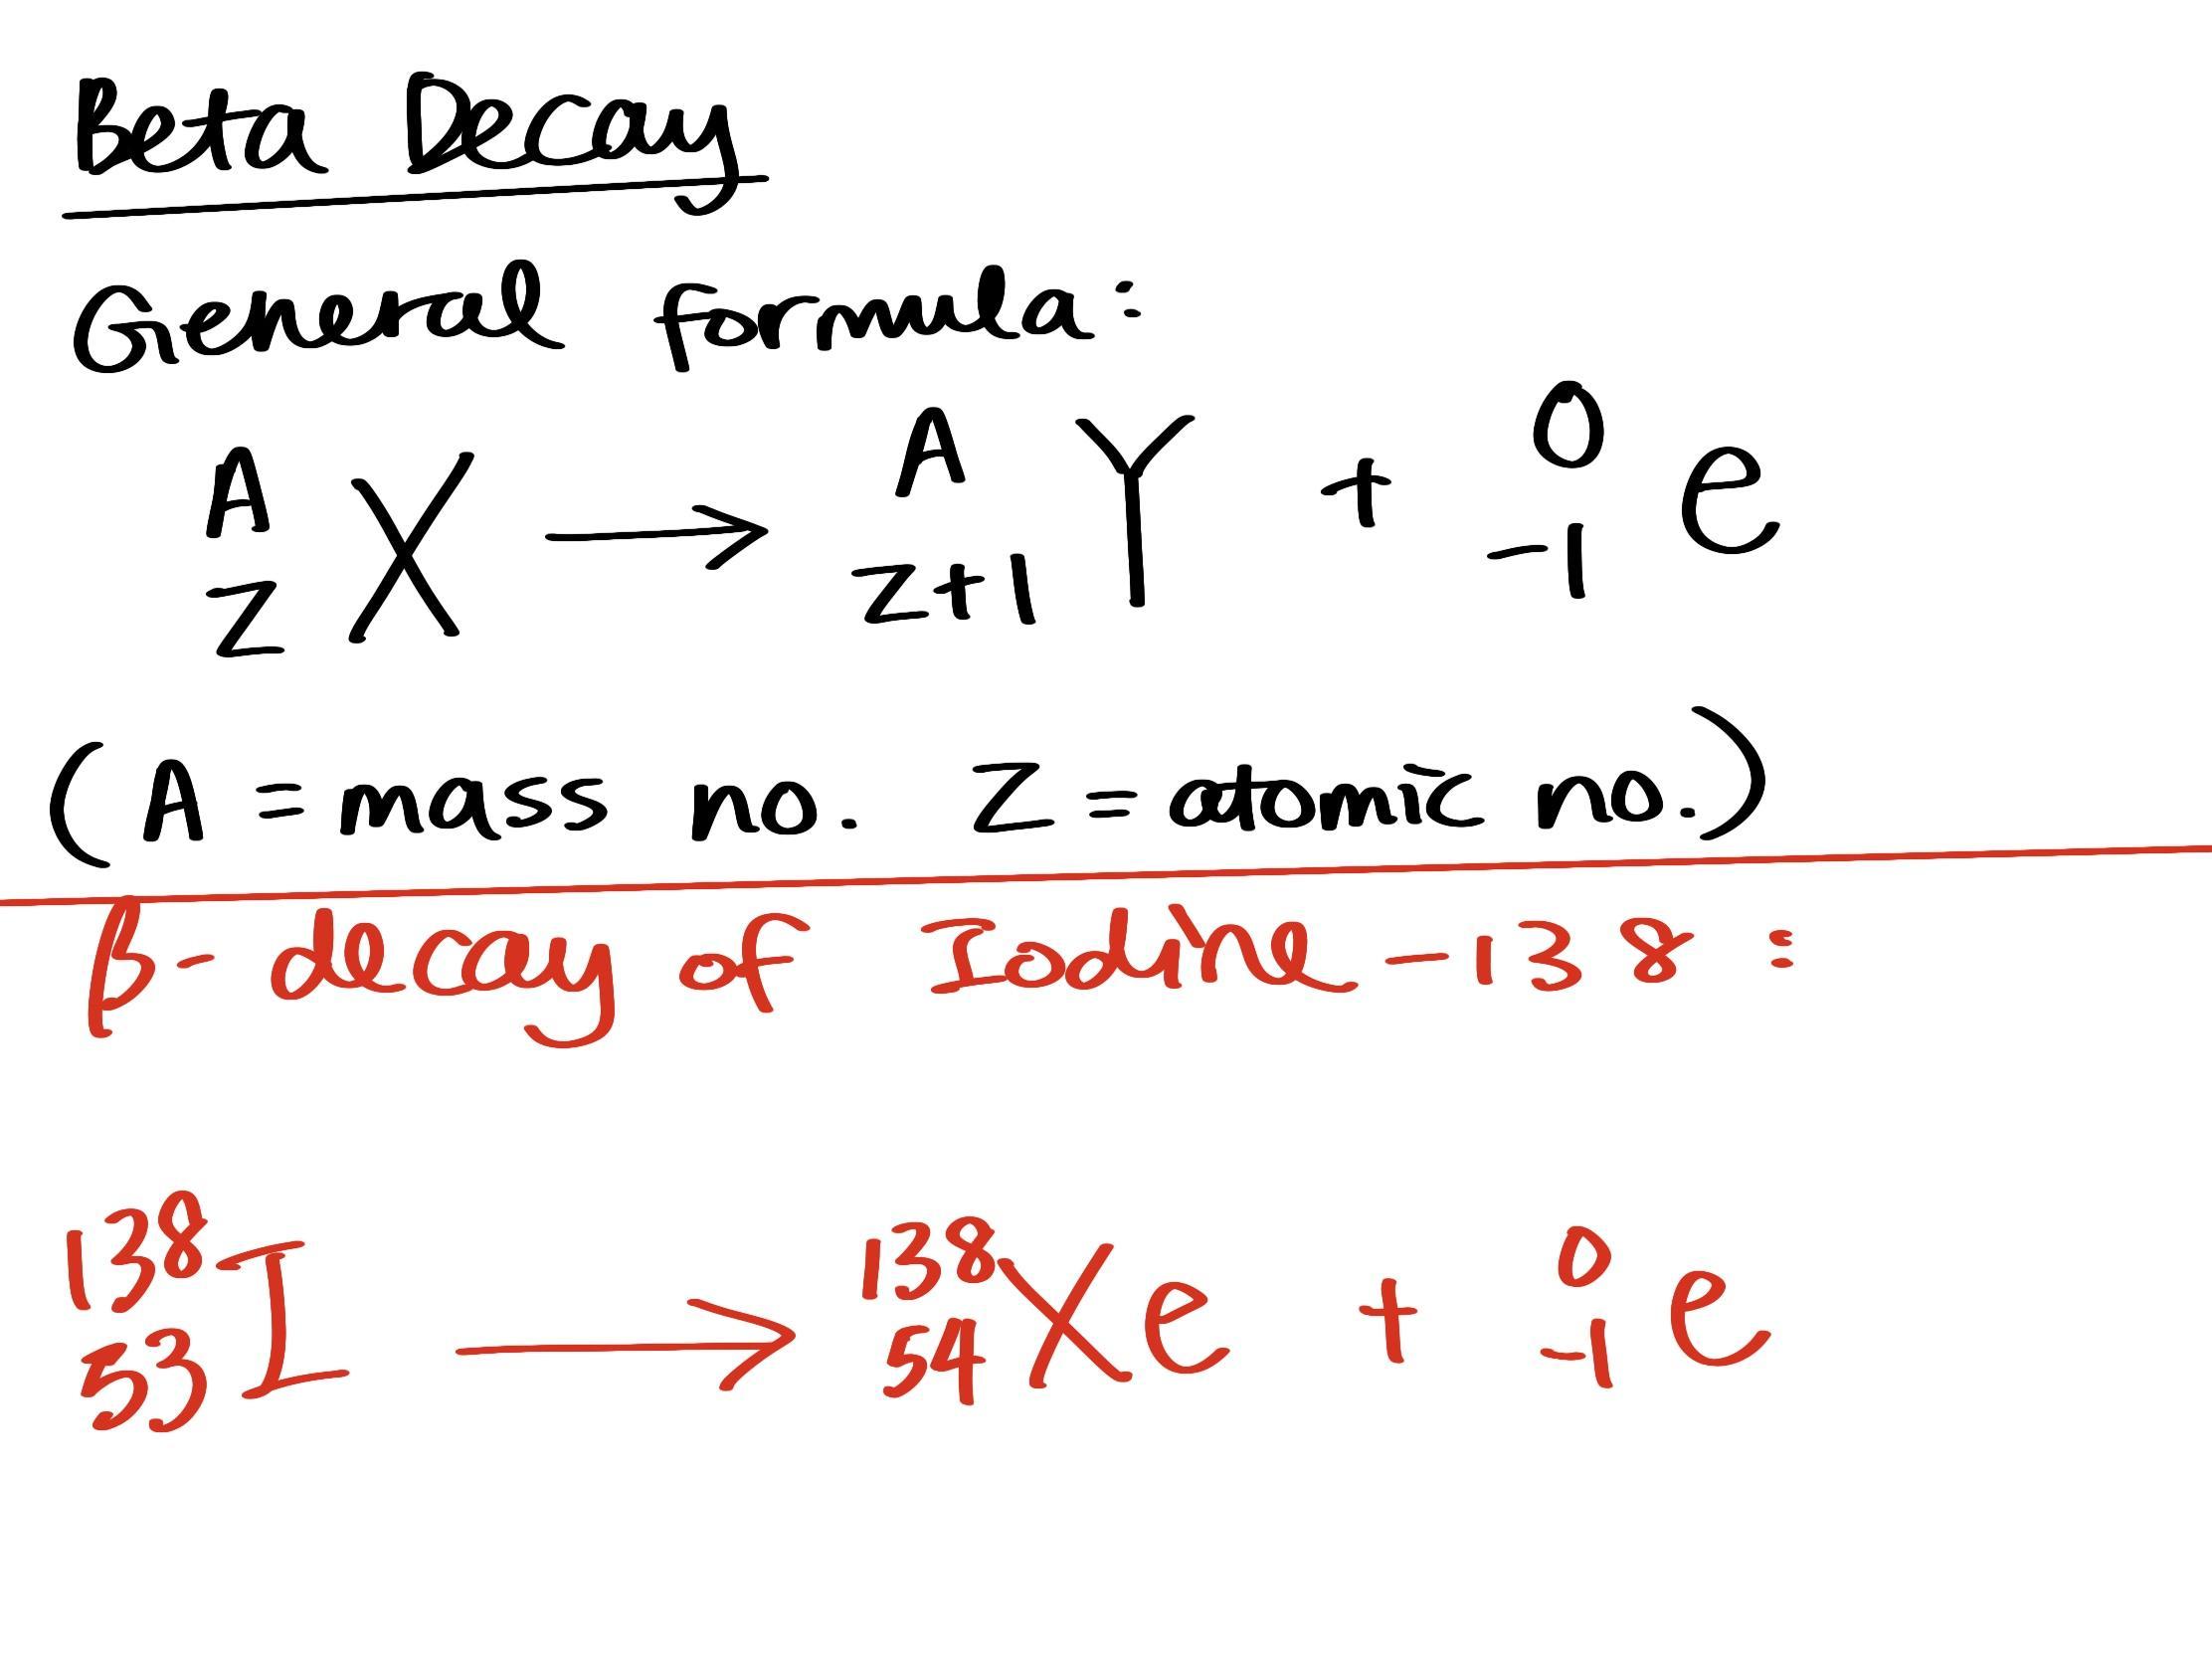 Beta Decay
General formula:
ᴬ_Z X → ᴬ_Z+1 Y + ⁰_-1 e
(A = mass no. Z = atomic no.)
β- decay of Iodine -138:
¹³⁸₅₃I → ¹³⁸₅₄Xe + ⁰₋₁e